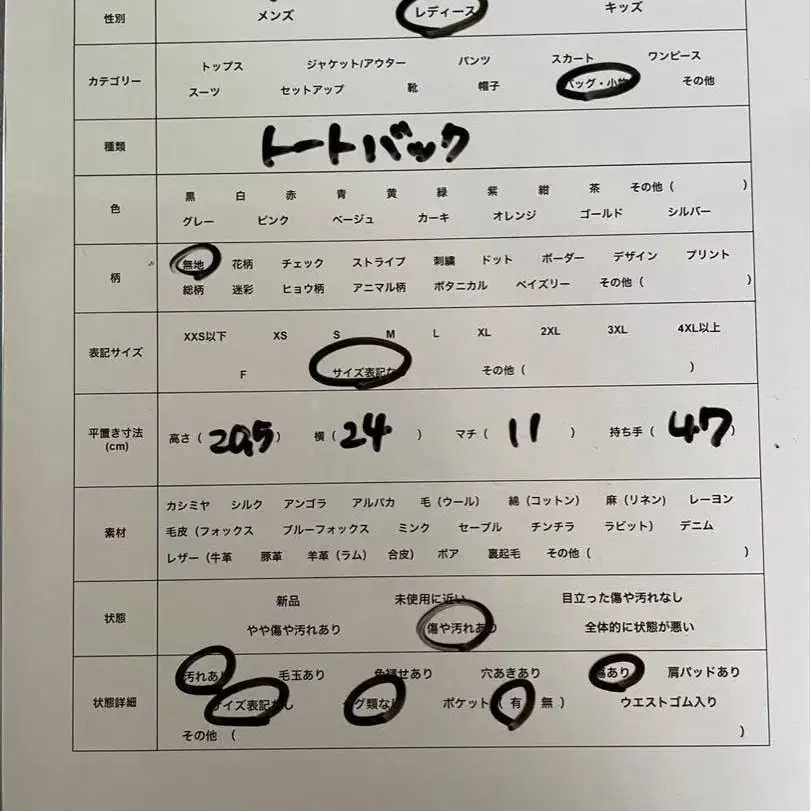 性別 メンズ レディース キッズ
カテゴリー トップス ジャケット/アウター パンツ スカート ワンピース
スーツ セットアップ 靴 帽子 バッグ・小物 その他
種類 トートバック
色 黒 白 赤 青 黄 緑 紫 紺 茶 その他 ( )
グレー ピンク ベージュ カーキ オレンジ ゴールド シルバー
柄 無地 花柄 チェック ストライプ 刺繍 ドット ボーダー デザイン プリント
総柄 迷彩 ヒョウ柄 アニマル柄 ボタニカル ペイズリー その他 ( )
表記サイズ XXS以下 XS S M L XL 2XL 3XL 4XL以上
F サイズ表記なし その他 ( )
平置き寸法 (cm) 高さ ( 20.5 ) 横 ( 24 ) マチ ( 11 ) 持ち手 ( 47 )
素材 カシミヤ シルク アンゴラ アルパカ 毛 (ウール) 綿 (コットン) 麻 (リネン) レーヨン
毛皮 (フォックス ブルーフォックス ミンク セーブル チンチラ ラビット) デニム
レザー (牛革 豚革 羊革 (ラム) 合皮) ボア 裏起毛 その他 ( )
状態 新品 未使用に近い 目立った傷や汚れなし
やや傷や汚れあり 傷や汚れあり 全体的に状態が悪い
状態詳細 汚れあり 毛玉あり 色褪せあり 穴あきあり 傷あり 肩パッドあり
サイズ表記なし タグ類なし ポケット ( 有 無 ) ウエストゴム入り
その他 ( )